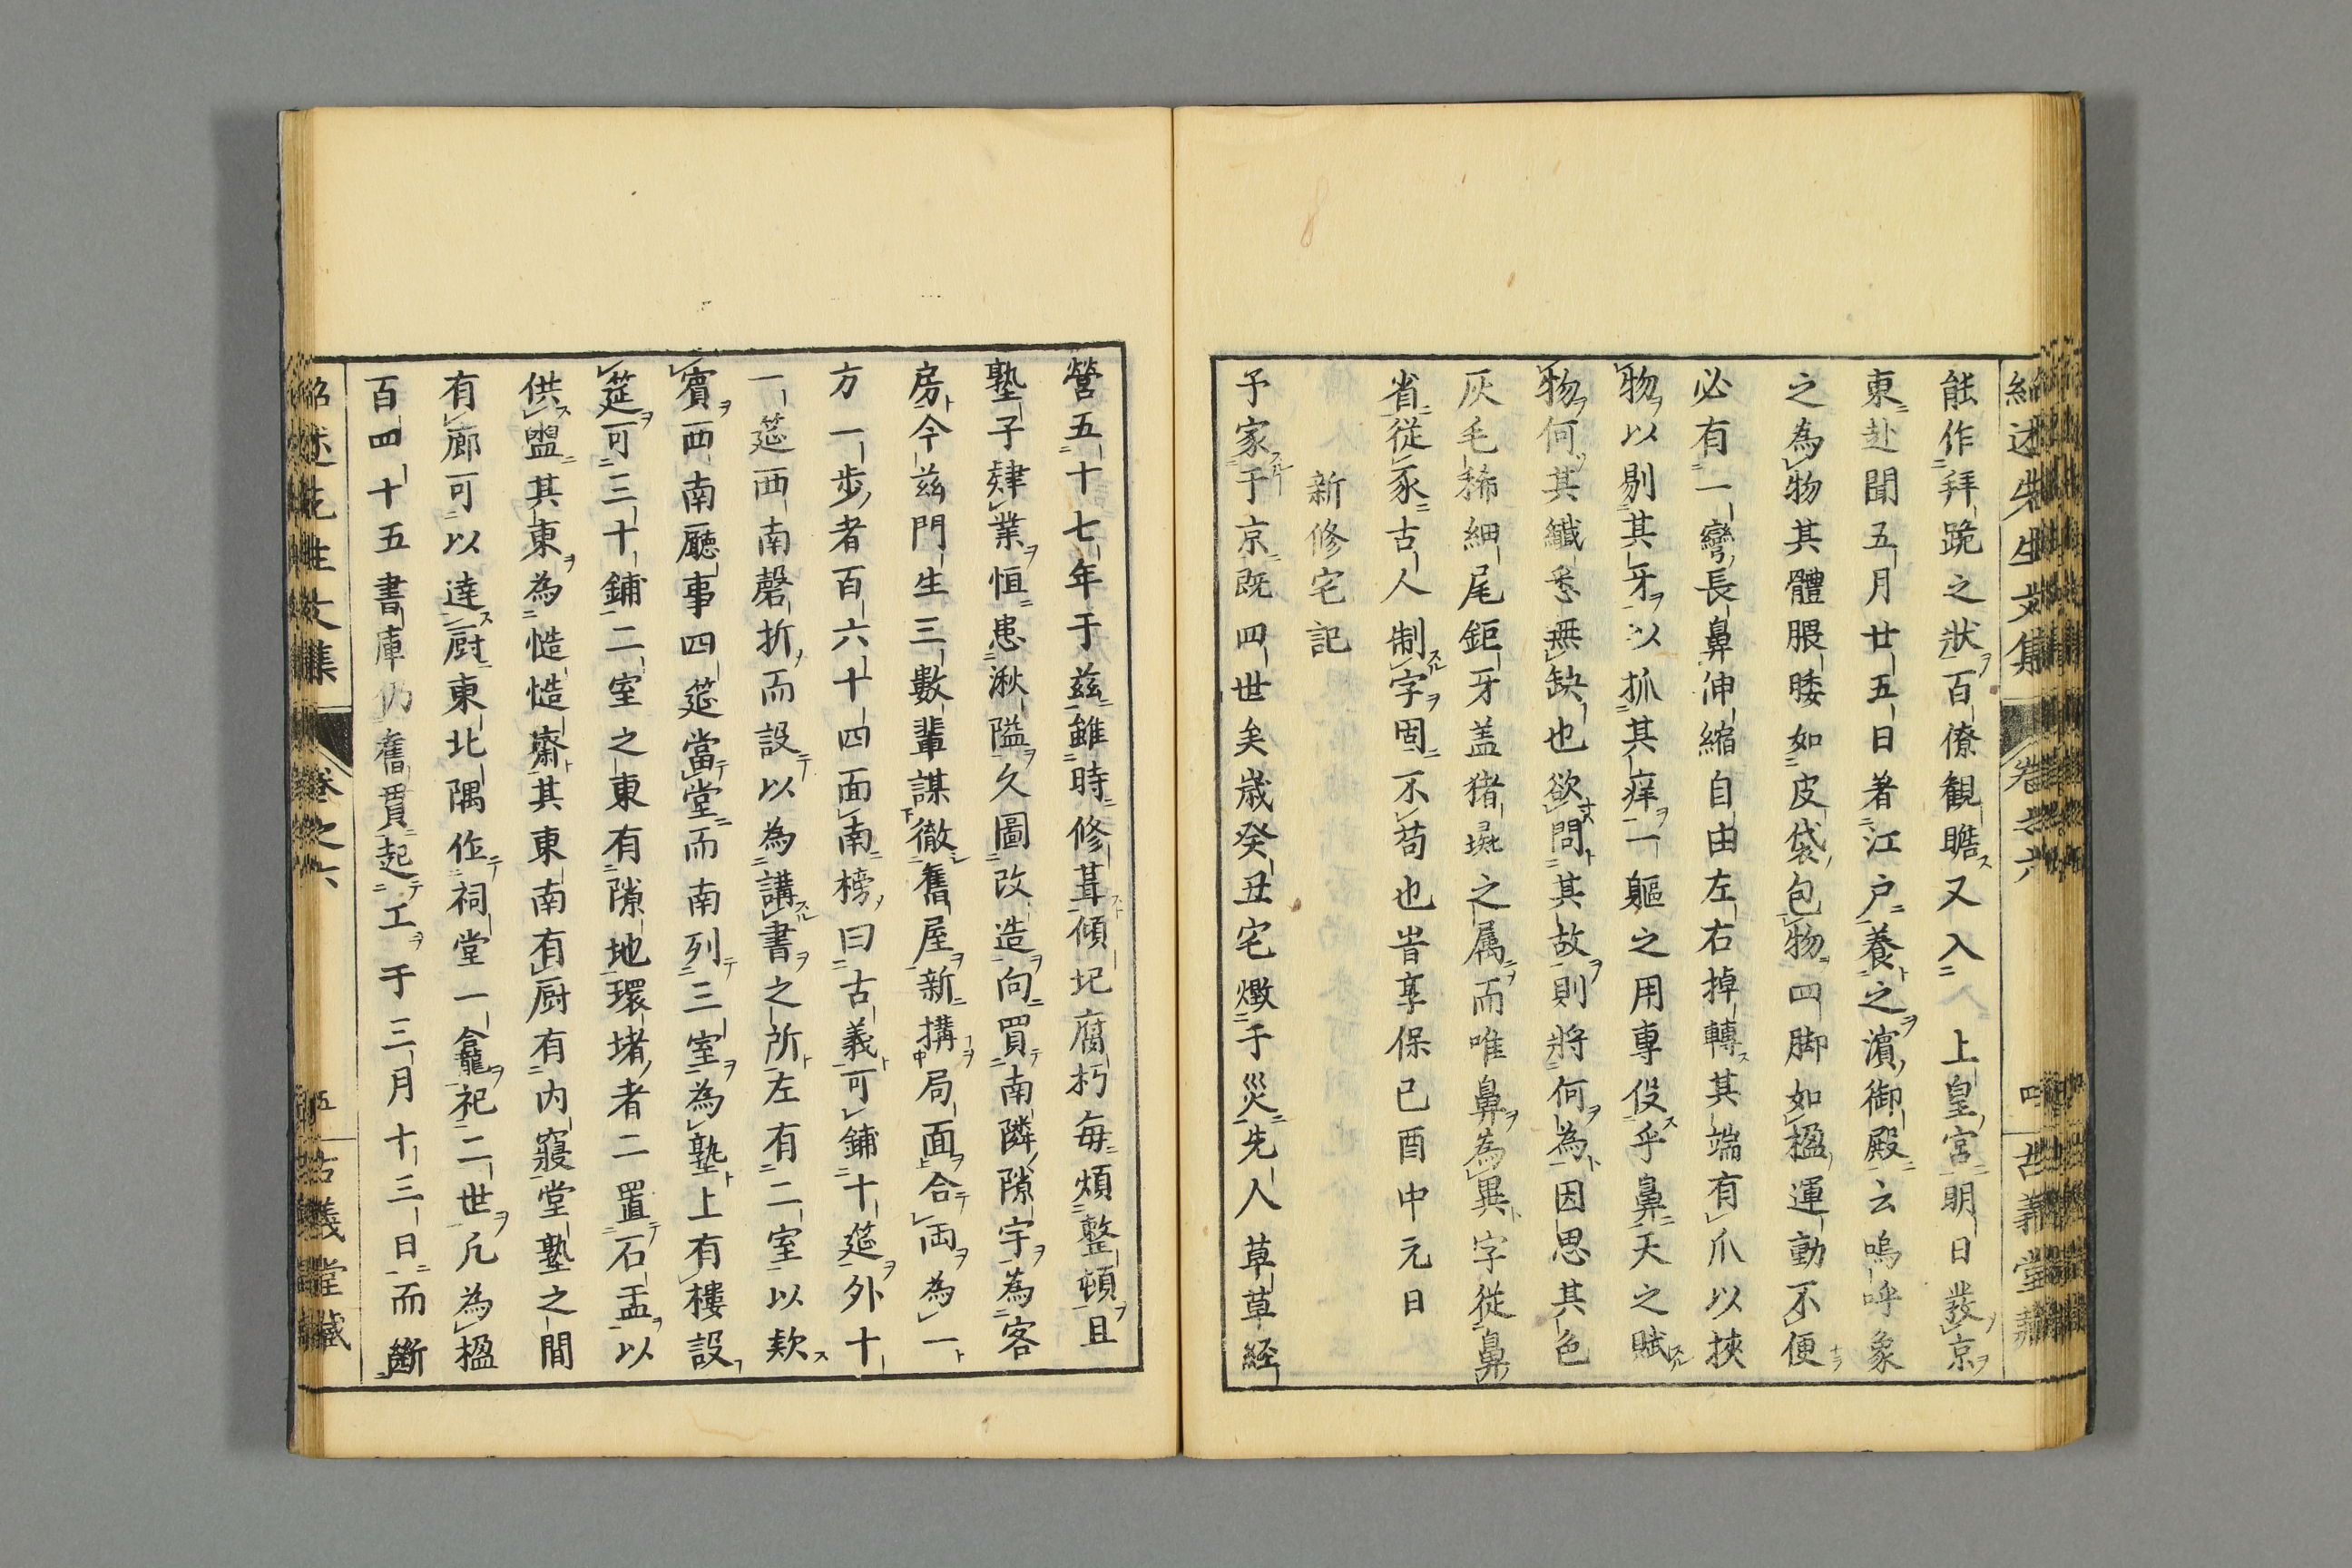 紹述先生文集 卷之六 四 古義堂藏
能作拜跪之狀百僚観瞻又入 上皇宮明日發京
東赴聞五月廿五日著江戸養之濵御殿云嗚呼象
之為物其體腲腇如皮袋包物四脚如楹運動不便
必有一彎長鼻伸縮自由左右掉轉其端有爪以挾
物以剔其牙以抓其痒一軀之用専役乎鼻天之賦
物何其纖悉無缺也欲問其故則將何為因思其色
灰毛稀細尾鉅牙盖猪彘之属而唯鼻為異字從鼻
省從豕古人制字固不苟也峕享保己酉中元日
新修宅記
予家于京既四世矣歳癸丑宅燬于災先人草草経
營五十七年于茲雖時修葺傾圮腐朽毎煩整頓且
塾子肄業恒患湫隘久圖改造向買南隣隙宇為客
房今茲門生三數輩謀徹舊屋新搆局面合両為一
方一歩者百六十四面南榜曰古義可鋪十筵外十
一筵西南磬折而設以為講書之所左有二室以欵
賓西南廳事四筵當堂而南列三室為塾上有樓設
筵可三十鋪二室之東有隙地環堵者二置石盂以
供盥其東為慥慥齋其東南有厨有内寢堂塾之間
有廊可以達厨東北隅作祠堂一龕祀二世凡為楹
百四十五書庫仍舊貫起工于三月十三日而斷
紹述先生文集 卷之六 五 古義堂藏